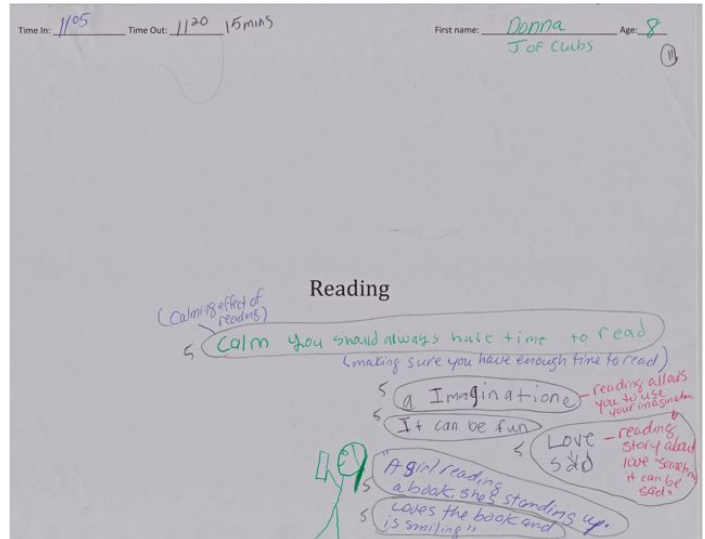 Time In: 11 05 Time Out: 11 20 15 mins First name: Donna Age: 8
J of Clubs
11
Reading
(Calming effect of
reading)
5 Calm you should always have time to read
(making sure you have enough time to read)
5 a Imaginatione - reading allows
you to use
your imagination
5 It can be fun
5 Love - reading
sad story about
love "sometimes
it can be
sad."
5 "A girl reading
a book. she's standing up.
5 Loves the book and
is smiling"